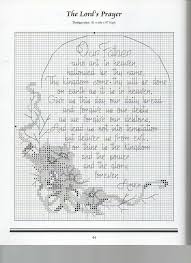 The Lord's Prayer
Our Father
who art in heaven,
hallowed be thy name.
Thy kingdom come, thy will be done
on earth as it is in heaven.
Give us this day our daily bread
and forgive us our trespasses
as we forgive our debtors,
And lead us not into temptation
but deliver us from evil,
for thine is the kingdom
and the power
and the glory
forever.
Amen
44